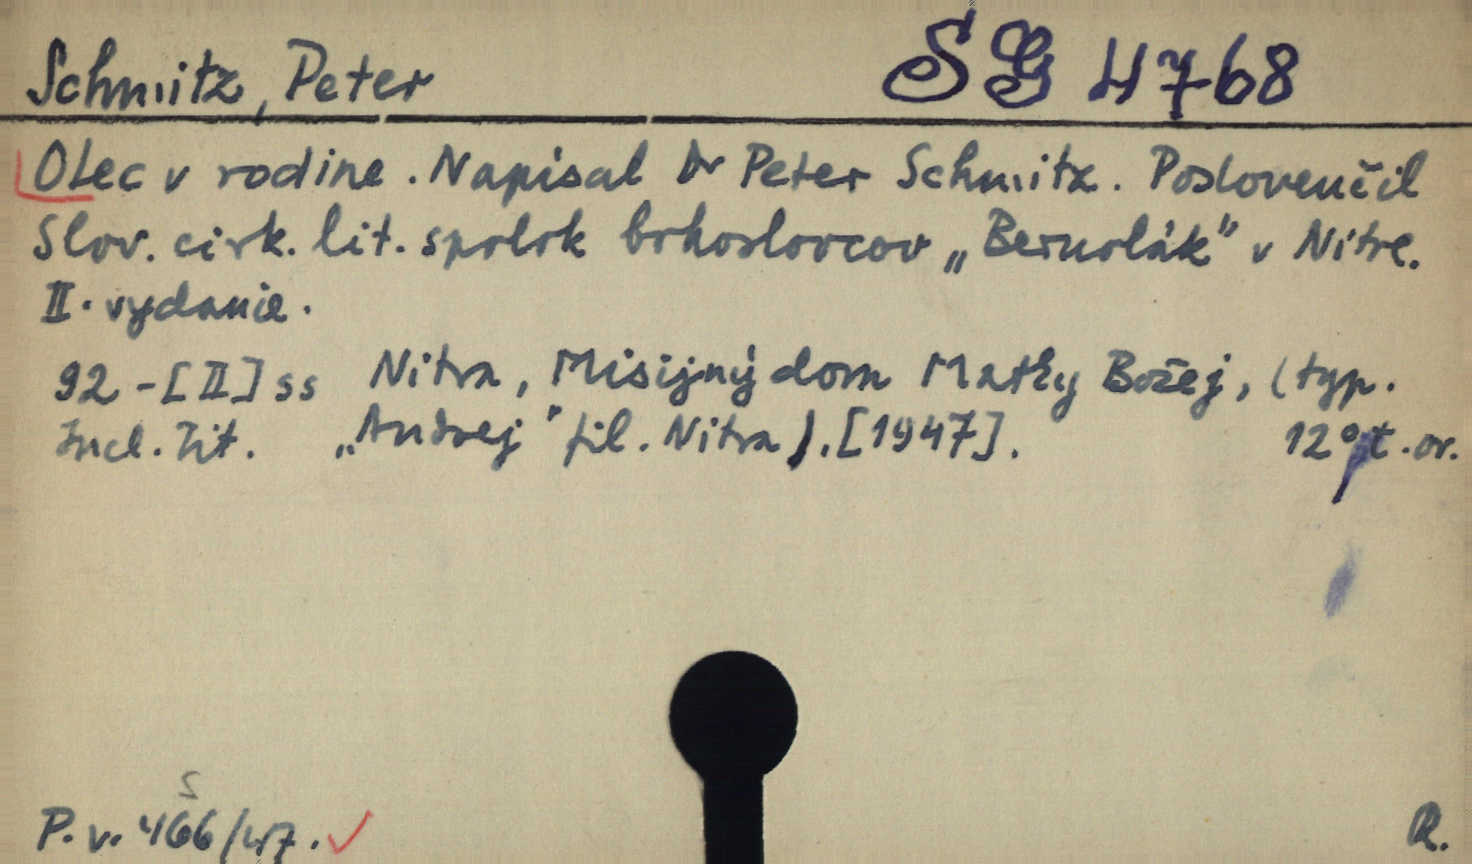 Schmitz, Peter SG 4768
Otec v rodine. Napísal Dr Peter Schmitz. Poslovenčil
Slov. cirk. lit. spolok bohoslovcov „Bernolák" v Nitre.
II. vydanie.
92-[II] ss Nitra, Misijný dom Matky Božej, (typ.
Incl. tit. „Andrej" fil. Nitra). [1947]. 12° t. or.
S
P. v. 466/47. ✓ R.